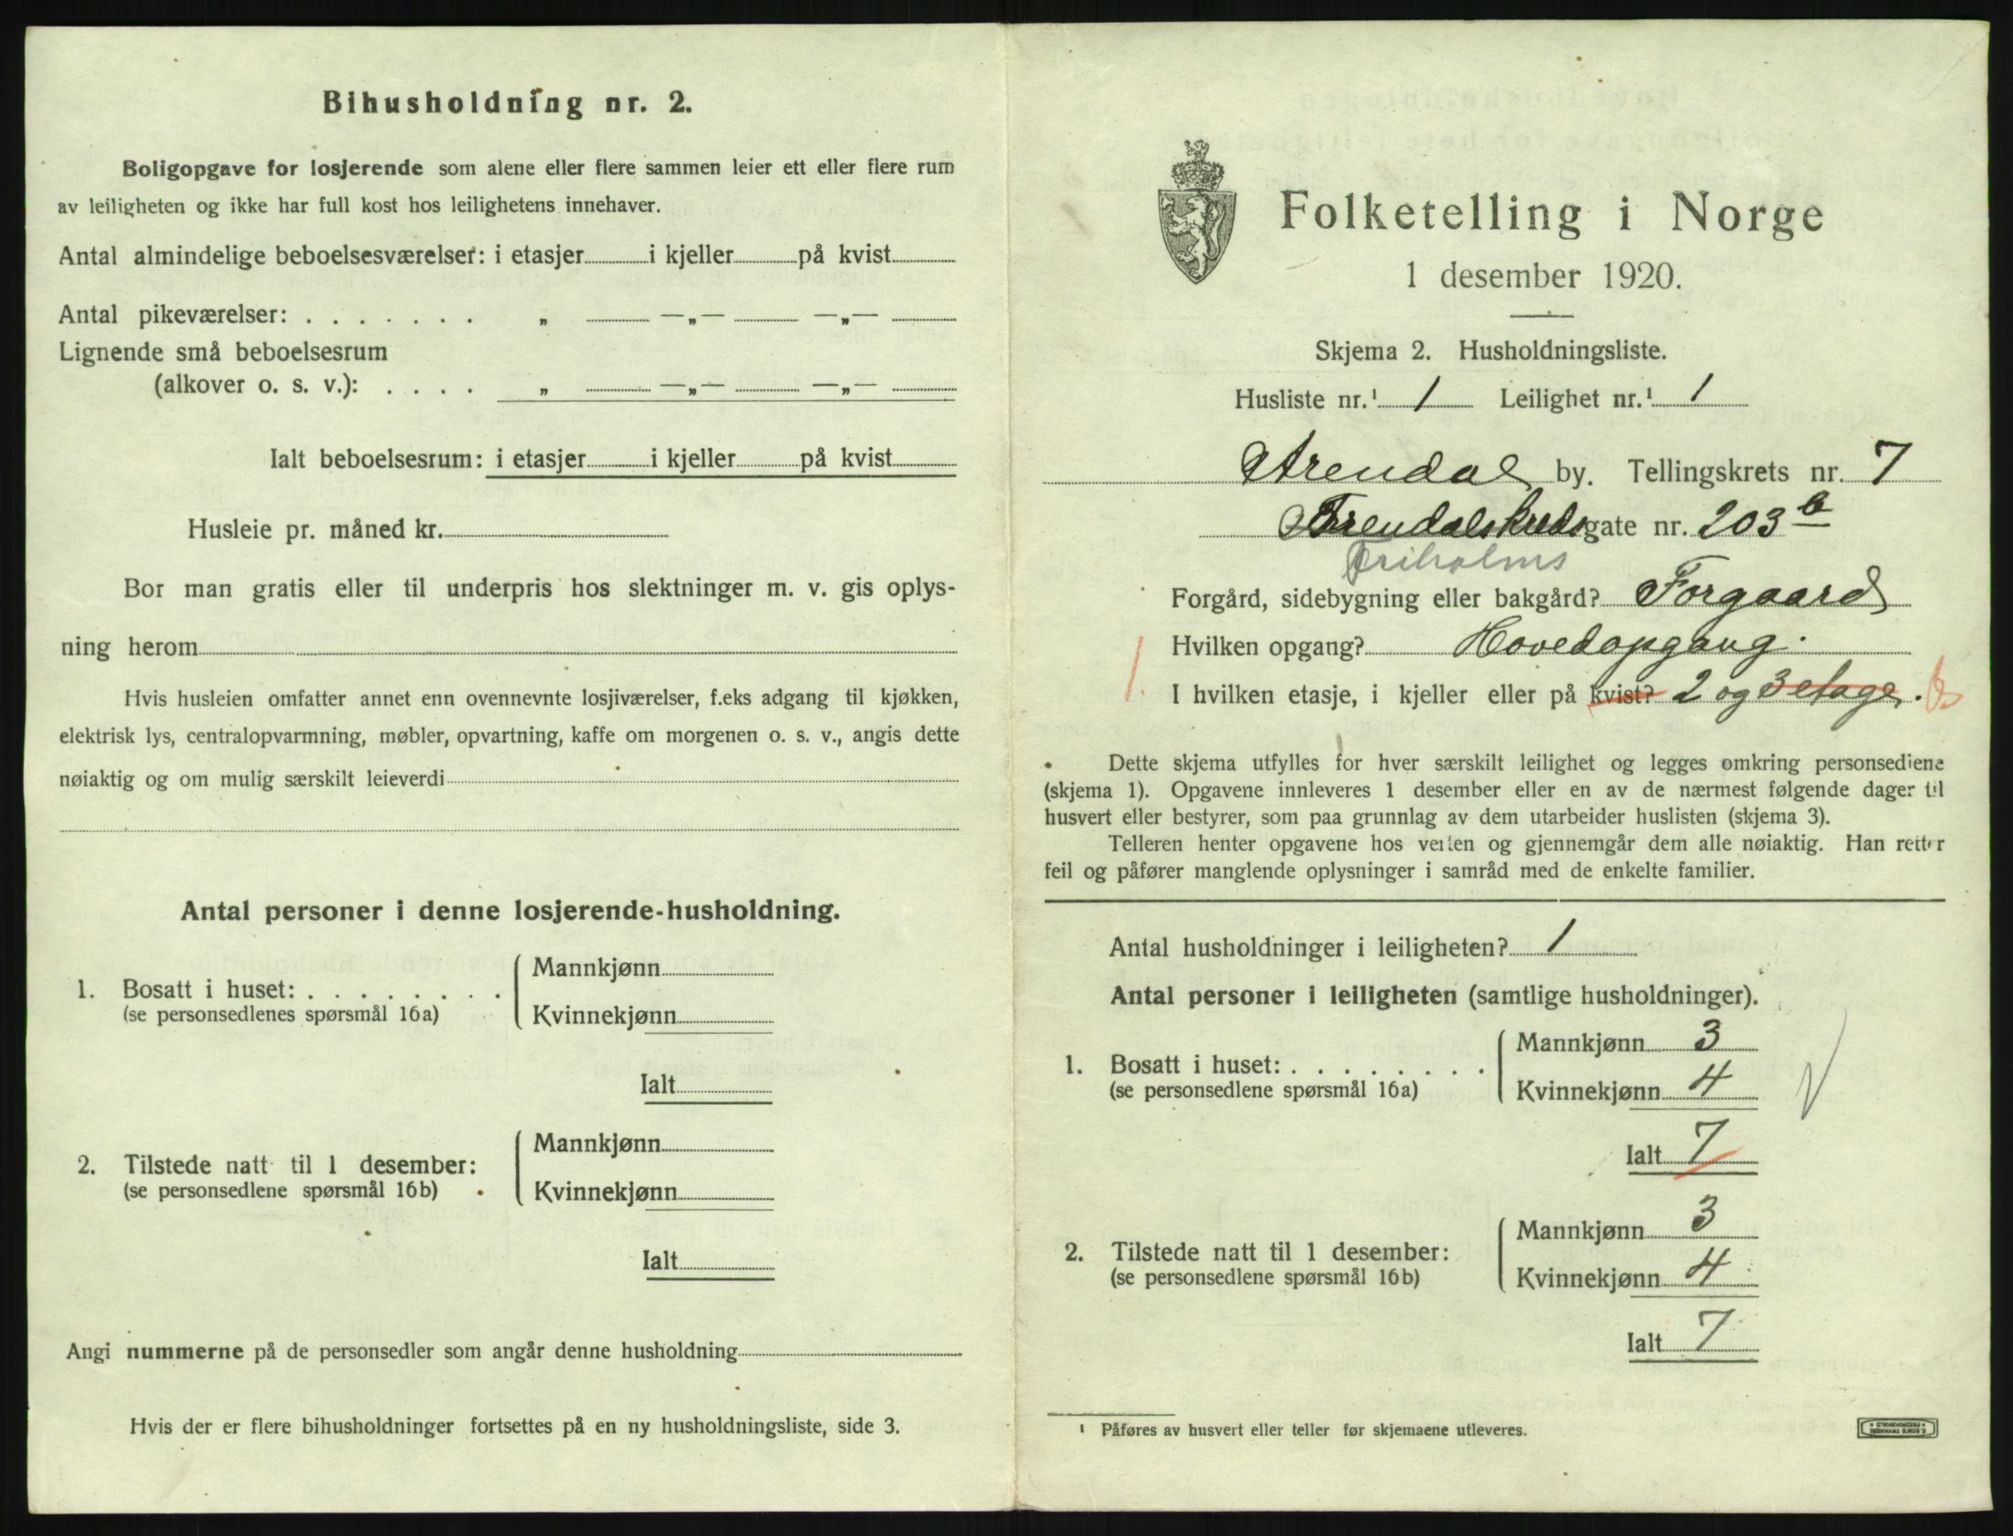 Bihusholdning nr. 2.
Boligopgave for losjerende som alene eller flere sammen leier ett eller flere rum
av leiligheten og ikke har full kost hos leilighetens innehaver.
Antal almindelige beboelsesværelser: i etasjer i kjeller på kvist
Antal pikeværelser: . . . . . . . „ —„— —„—
Lignende små beboelsesrum
(alkover o. s. v.): . . . . „ —„— —„—
Ialt beboelsesrum: i etasjer i kjeller på kvist
Husleie pr. måned kr.
Bor man gratis eller til underpris hos slektninger m. v. gis oplys-
ning herom
Hvis husleien omfatter annet enn ovennevnte losjiværelser, f.eks adgang til kjøkken,
elektrisk lys, centralopvarmning, møbler, opvartning, kaffe om morgenen o. s. v., angis dette
nøiaktig og om mulig særskilt leieverdi
Antal personer i denne losjerende-husholdning.
1. Bosatt i huset: . . . . . . . .
(se personsedlenes spørsmål 16a)
Mannkjønn
Kvinnekjønn
Ialt
2. Tilstede natt til 1 desember:
(se personsedlene spørsmål 16b)
Mannkjønn
Kvinnekjønn
Ialt
Angi nummerne på de personsedler som angår denne husholdning
Hvis der er flere bihusholdninger fortsettes på en ny husholdningsliste, side 3.
Folketelling i Norge
1 desember 1920.
Skjema 2. Husholdningsliste.
Husliste nr.¹ 1 Leilighet nr.¹ 1
Arendal by. Tellingskrets nr. 7
gate nr. 203 b
Friholms
Forgård, sidebygning eller bakgård? Forgaard
Hvilken opgang? Hovedopgang.
I hvilken etasje, i kjeller eller på kvist? 2 og 3 etage.
Dette skjema utfylles for hver særskilt leilighet og legges omkring personsedlene
(skjema 1). Opgavene innleveres 1 desember eller en av de nærmest følgende dager til
husvert eller bestyrer, som paa grunnlag av dem utarbeider huslisten (skjema 3).
Telleren henter opgavene hos verten og gjennemgår dem alle nøiaktig. Han retter
feil og påfører manglende oplysninger i samråd med de enkelte familier.
Antal husholdninger i leiligheten? 1
Antal personer i leiligheten (samtlige husholdninger).
1. Bosatt i huset: . . . . . . . .
(se personsedlene spørsmål 16a)
Mannkjønn 3
Kvinnekjønn 4
Ialt 7
2. Tilstede natt til 1 desember:
(se personsedlene spørsmål 16b)
Mannkjønn 3
Kvinnekjønn 4
Ialt 7
¹ Påføres av husvert eller teller før skjemaene utleveres.